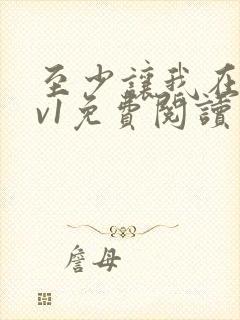 至少讓我在
v1免費閱讀
詹母